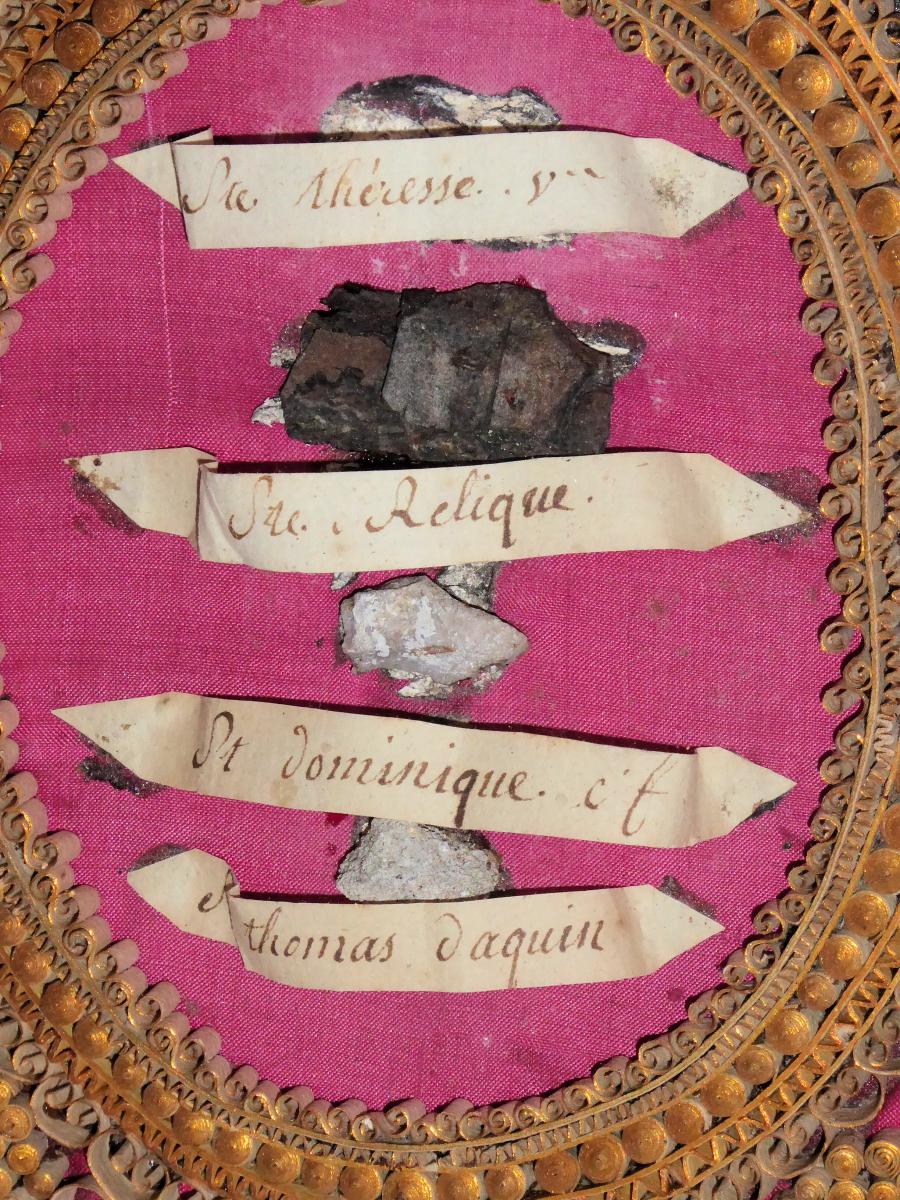 Ste théresse. v
Ste. Relique.
St dominique. c f
thomas daquin